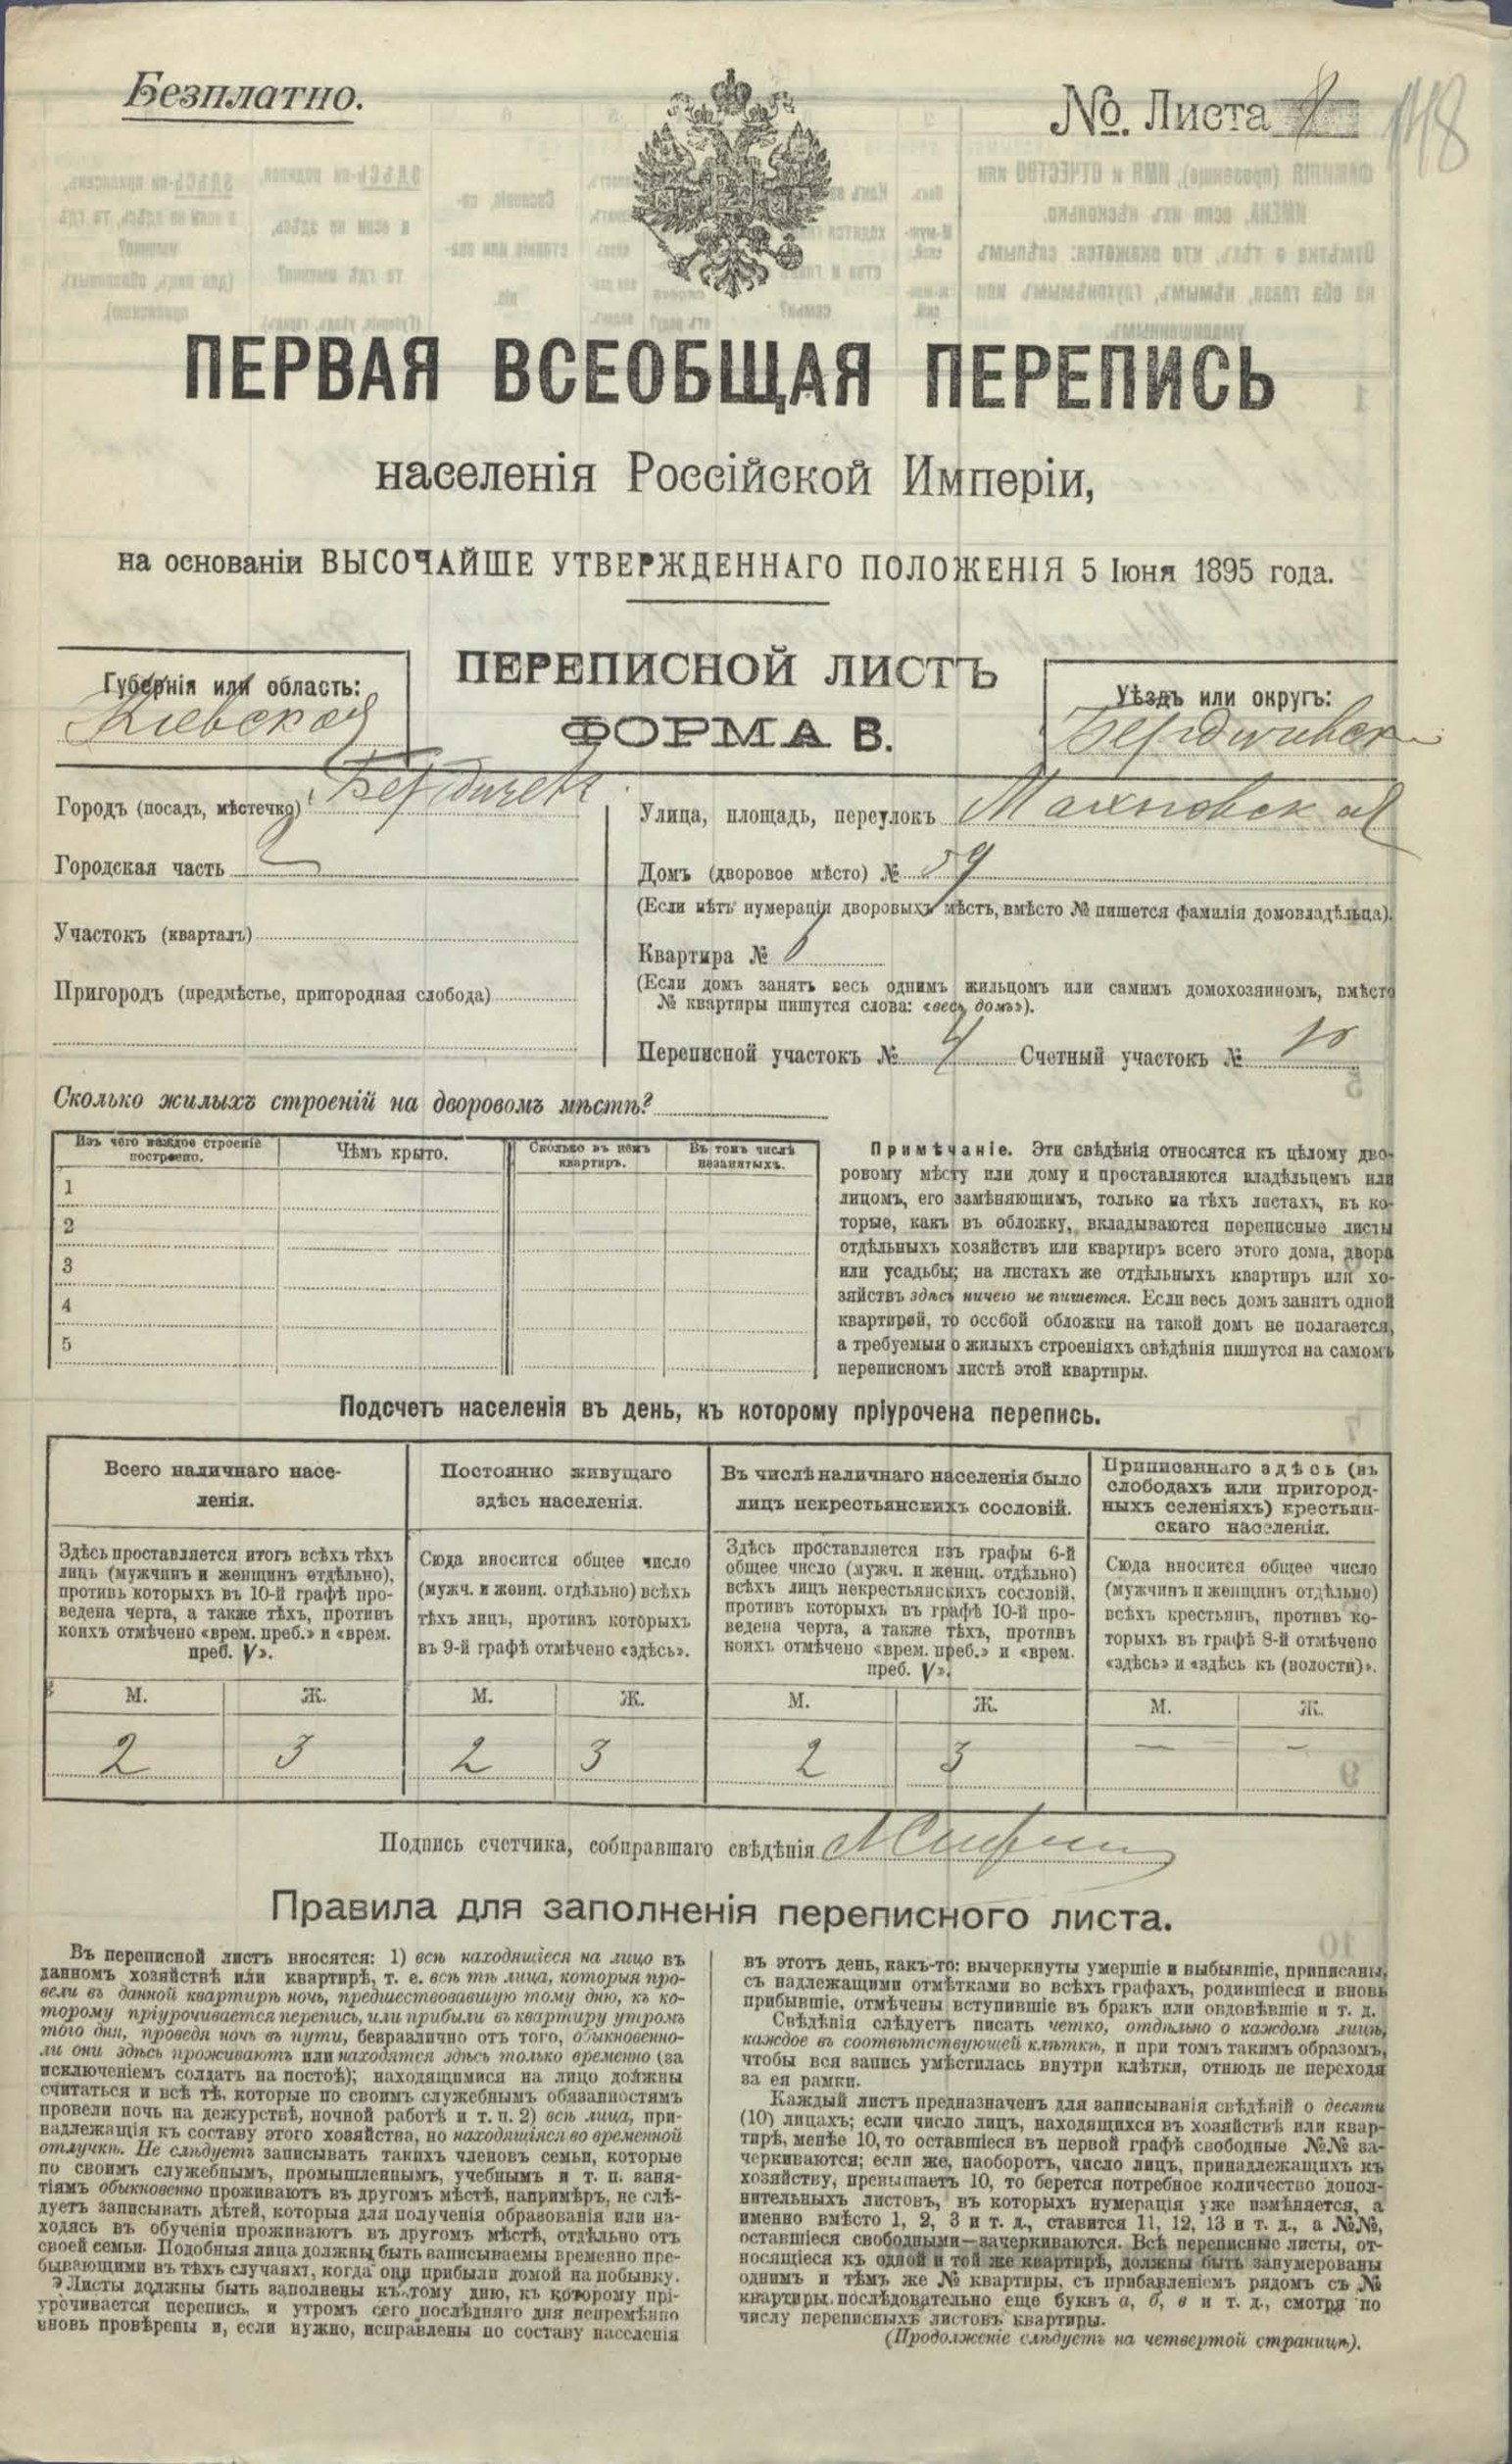 Безплатно.
№. Листа
148
ПЕРВАЯ ВСЕОБЩАЯ ПЕРЕПИСЬ
населенія Россійской Имперіи,
на основаніи ВЫСОЧАЙШЕ УТВЕРЖДЕННАГО ПОЛОЖЕНІЯ 5 Іюня 1895 года.
ПЕРЕПИСНОЙ ЛИСТЪ
ФОРМА В.
Губернія или область:
Кіевская
Уѣздъ или округъ:
Бердичевск
Городъ (посадъ, мѣстечко) Бердичевъ
Городская часть 2
Участокъ (кварталъ)
Пригородъ (предмѣстье, пригородная слобода)
Улица, площадь, переулокъ Махновская
Домъ (дворовое мѣсто) № 59
(Если нѣтъ нумераціи дворовыхъ мѣстъ, вмѣсто № пишется фамилія домовладѣльца).
Квартира №
(Если домъ занятъ весь однимъ жильцомъ или самимъ домохозяиномъ, вмѣсто
№ квартиры пишутся слова: «весь домъ»).
Переписной участокъ № 4 Счетный участокъ № 10
Сколько жилыхъ строеній на дворовомъ мѣстѣ?
Изъ чего каждое строеніе построено.
Чѣмъ крыто.
Сколько въ немъ квартиръ.
Въ томъ числѣ незанятыхъ.
1
2
3
4
5
Примѣчаніе. Эти свѣдѣнія относятся къ цѣлому дво-
ровому мѣсту или дому и проставляются владѣльцемъ или
лицомъ, его замѣняющимъ, только на тѣхъ листахъ, въ ко-
торые, какъ въ обложку, вкладываются переписные листы
отдѣльныхъ хозяйствъ или квартиръ всего этого дома, двора
или усадьбы; на листахъ же отдѣльныхъ квартиръ или хо-
зяйствъ здѣсь ничего не пишется. Если весь домъ занятъ одной
квартирой, то особой обложки на такой домъ не полагается,
а требуемыя о жилыхъ строеніяхъ свѣдѣнія пишутся на самомъ
переписномъ листѣ этой квартиры.
Подсчетъ населенія въ день, къ которому пріурочена перепись.
Всего наличнаго насе-
ленія.
Здѣсь проставляется итогъ всѣхъ тѣхъ
лицъ (мужчинъ и женщинъ отдѣльно),
противъ которыхъ въ 10-й графѣ про-
ведена черта, а также тѣхъ, противъ
коихъ отмѣчено «врем. преб.» и «врем.
преб. V».
М. Ж.
2 3
Постоянно живущаго
здѣсь населенія.
Сюда вносится общее число
(мужч. и женщ. отдѣльно) всѣхъ
тѣхъ лицъ, противъ которыхъ
въ 9-й графѣ отмѣчено «здѣсь».
М. Ж.
2 3
Въ числѣ наличнаго населенія было
лицъ некрестьянскихъ сословій.
Здѣсь проставляется изъ графы 6-й
общее число (мужч. и женщ. отдѣльно)
всѣхъ лицъ некрестьянскихъ сословій,
противъ которыхъ въ графѣ 10-й про-
ведена черта, а также тѣхъ, противъ
коихъ отмѣчено «врем. преб.» и «врем.
преб. V».
М. Ж.
2 3
Приписаннаго здѣсь (въ
слободахъ или пригород-
ныхъ селеніяхъ) крестьян-
скаго населенія.
Сюда вносится общее число
(мужчинъ и женщинъ отдѣльно)
всѣхъ крестьянъ, противъ ко-
торыхъ въ графѣ 8-й отмѣчено
«здѣсь» и «здѣсь къ (волости)».
М. Ж.
— —
Подпись счетчика, собиравшаго свѣдѣнія
Правила для заполненія переписного листа.
Въ переписной листъ вносятся: 1) всѣ находящіеся на лицо въ
данномъ хозяйствѣ или квартирѣ, т. е. всѣ тѣ лица, которыя про-
вели въ данной квартирѣ ночь, предшествовавшую тому дню, къ ко-
торому пріурочивается перепись, или прибыли въ квартиру утромъ
того дня, проведя ночь въ пути, безразлично отъ того, обыкновенно-
ли они здѣсь проживаютъ или находятся здѣсь только временно (за
исключеніемъ солдатъ на постоѣ); находящимися на лицо должны
считаться и всѣ тѣ, которые по своимъ служебнымъ обязанностямъ
провели ночь на дежурствѣ, ночной работѣ и т. п. 2) всѣ лица, при-
надлежащія къ составу этого хозяйства, но находящіяся во временной
отлучкѣ. Не слѣдуетъ записывать такихъ членовъ семьи, которые
по своимъ служебнымъ, промышленнымъ, учебнымъ и т. п. заня-
тіямъ обыкновенно проживаютъ въ другомъ мѣстѣ, напримѣръ, не слѣ-
дуетъ записывать дѣтей, которыя для полученія образованія или на-
ходясь въ обученіи проживаютъ въ другомъ мѣстѣ, отдѣльно отъ
своей семьи. Подобныя лица должны быть записываемы временно пре-
бывающими въ тѣхъ случаяхъ, когда они прибыли домой на побывку.
Листы должны быть заполнены къ тому дню, къ которому прі-
урочивается перепись, и утромъ сего послѣдняго дня непремѣнно
вновь провѣрены и, если нужно, исправлены по составу населенія
въ этотъ день, какъ-то: вычеркнуты умершіе и выбывшіе, приписаны,
съ надлежащими отмѣтками во всѣхъ графахъ, родившіеся и вновь
прибывшіе, отмѣчены вступившіе въ бракъ или овдовѣвшіе и т. д.
Свѣдѣнія слѣдуетъ писать четко, отдѣльно о каждомъ лицѣ,
каждое въ соотвѣтствующей клѣткѣ, и при томъ такимъ образомъ,
чтобы вся запись умѣстилась внутри клѣтки, отнюдь не переходя
за ея рамки.
Каждый листъ предназначенъ для записыванія свѣдѣній о десяти
(10) лицахъ; если число лицъ, находящихся въ хозяйствѣ или квар-
тирѣ, менѣе 10, то оставшіеся въ первой графѣ свободные №№ за-
черкиваются; если же, наоборотъ, число лицъ, принадлежащихъ къ
хозяйству, превышаетъ 10, то берется потребное количество допол-
нительныхъ листовъ, въ которыхъ нумерація уже измѣняется, а
именно вмѣсто 1, 2, 3 и т. д., ставится 11, 12, 13 и т. д., а №№,
оставшіеся свободными—зачеркиваются. Всѣ переписные листы, от-
носящіеся къ одной и той же квартирѣ, должны быть занумерованы
однимъ и тѣмъ же № квартиры, съ прибавленіемъ рядомъ съ №
квартиры, послѣдовательно еще буквъ а, б, в и т. д., смотря по
числу переписныхъ листовъ квартиры.
(Продолженіе слѣдуетъ на четвертой страницѣ).